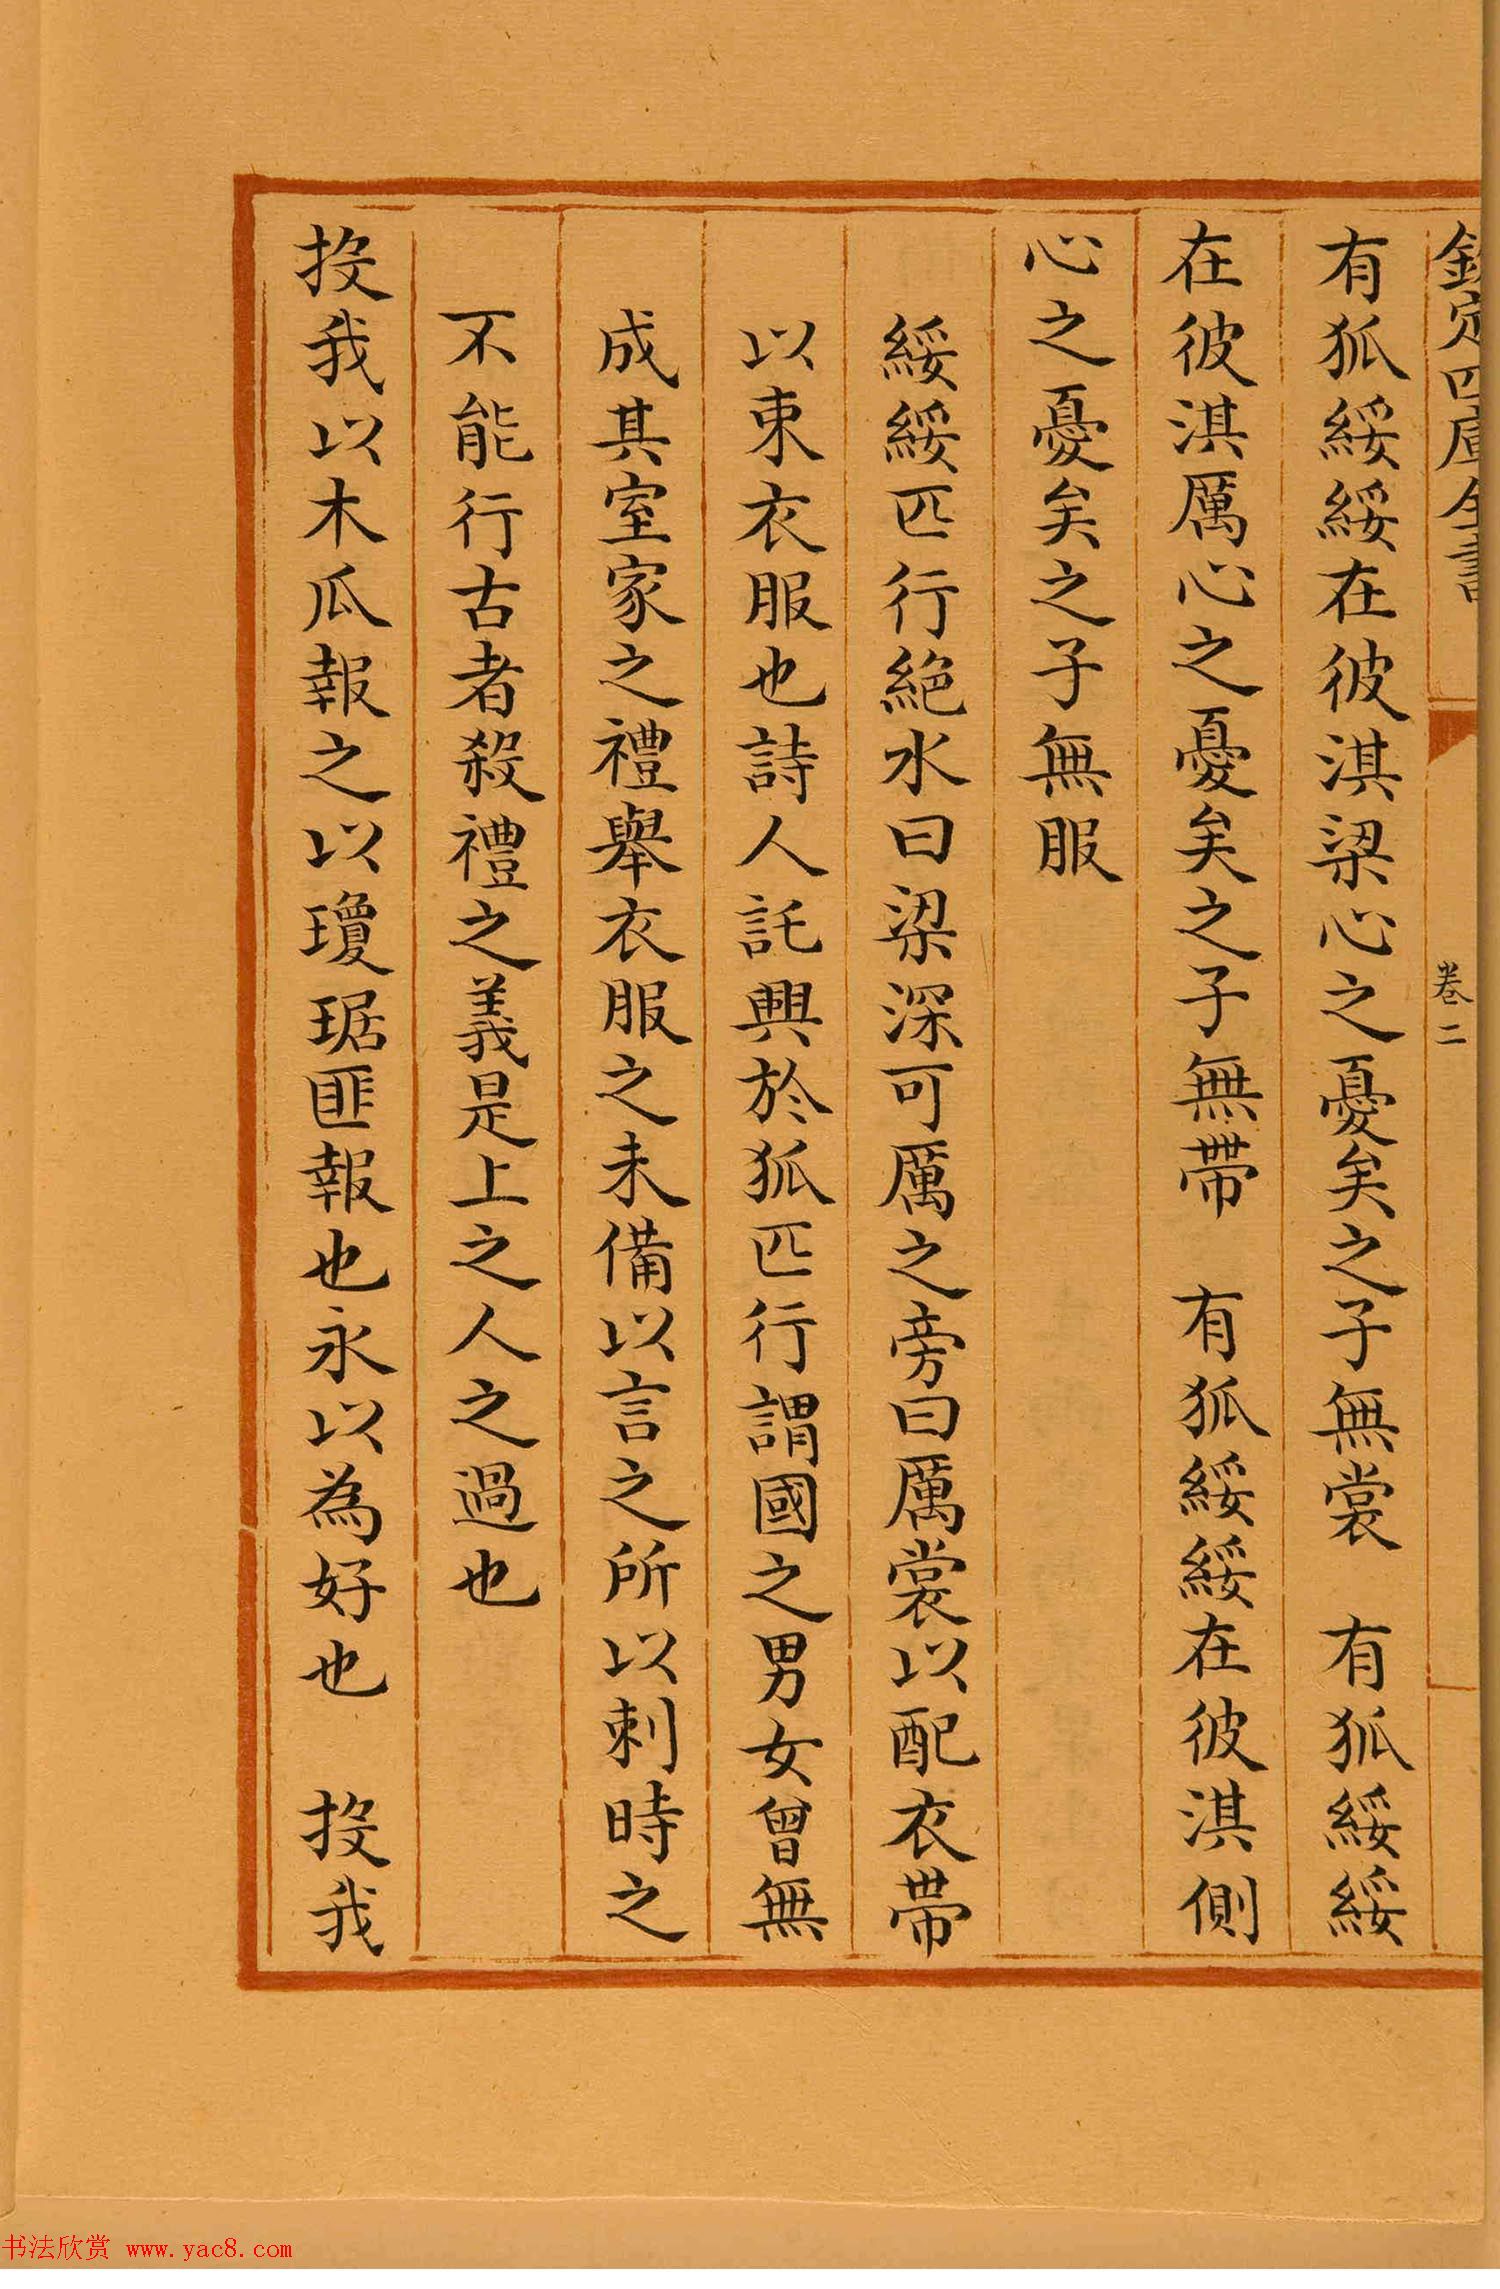 欽定四庫全書
卷二
有狐綏綏在彼淇梁心之憂矣之子無裳　有狐綏綏
在彼淇厲心之憂矣之子無帶　有狐綏綏在彼淇側
心之憂矣之子無服
綏綏匹行絶水曰梁深可厲之旁曰厲裳以配衣帶
以束衣服也詩人託興於狐匹行謂國之男女曾無
成其室家之禮舉衣服之未備以言之所以刺時之
不能行古者殺禮之義是上之人之過也
投我以木瓜報之以瓊琚匪報也永以為好也　投我
书法欣赏 www.yac8.com